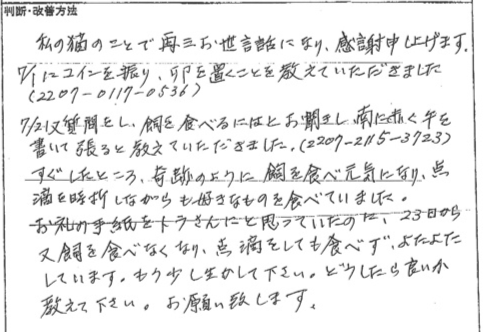 判断・改善方法
私の猫のことで再三お世話になり、感謝申し上げます。
7/1にコインを振り、卯を置くことを教えていただきました
(2207-0117-0536)
7/21又質問をし、餌を食べるにはとお聞きし、南に赤く午を
書いて張ると教えていただきました。(2207-2115-3723)
すぐしたところ、奇跡のように餌を食べ元気になり、点
滴を時折しながらも好きなものを食べていました。
お礼の手紙を と思っていたのに、23日から
又餌を食べなくなり、点滴をしても食べず、よたよた
しています。もう少し生かして下さい。どうしたら良いか
教えて下さい。お願い致します。